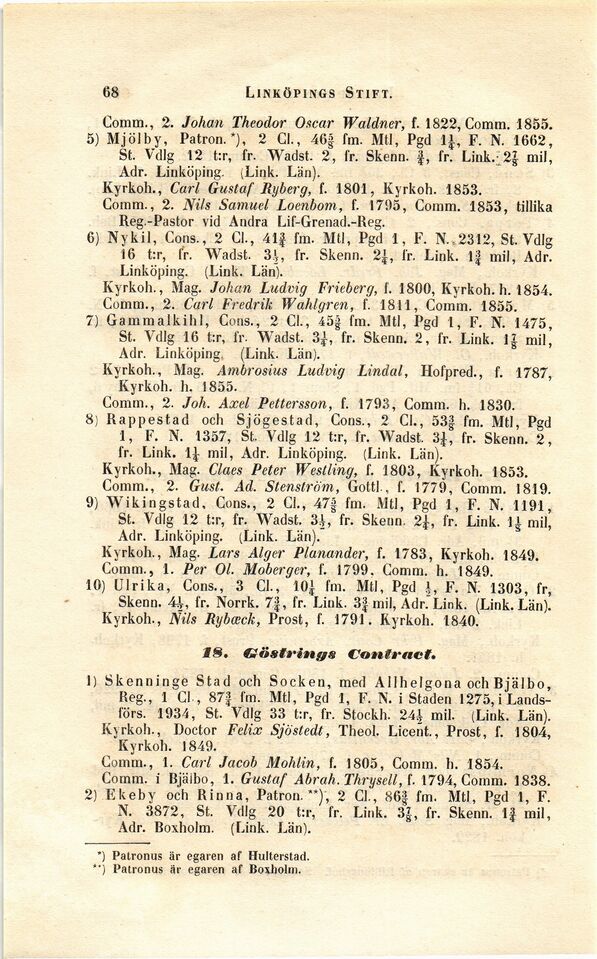 68 LINKÖPINGS STIFT.
Comm., 2. Johan Theodor Oscar Waldner, f. 1822, Comm. 1855.
5) Mjölby, Patron. *), 2 Cl., 46⅝ fm. Mtl, Pgd 1¼, F. N. 1662,
St. Vdlg 12 t:r, fr. Wadst. 2, fr. Skenn. ¾, fr. Link. 2⅞ mil,
Adr. Linköping. (Link. Län).
Kyrkoh., Carl Gustaf Ryberg, f. 1801, Kyrkoh. 1853.
Comm., 2. Nils Samuel Loenbom, f. 1795, Comm. 1853, tillika
Reg.-Pastor vid Andra Lif-Grenad.-Reg.
6) Nykil, Cons., 2 Cl., 41¾ fm. Mtl, Pgd 1, F. N. 2312, St. Vdlg
16 t:r, fr. Wadst. 3½, fr. Skenn. 2¼, fr. Link. 1¾ mil, Adr.
Linköping. (Link. Län).
Kyrkoh., Mag. Johan Ludvig Frieberg, f. 1800, Kyrkoh. h. 1854.
Comm., 2. Carl Fredrik Wahlgren, f. 1811, Comm. 1855.
7) Gammalkihl, Cons., 2 Cl., 45⅝ fm. Mtl, Pgd 1, F. N. 1475,
St. Vdlg 16 t:r, fr. Wadst. 3¼, fr. Skenn. 2, fr. Link. 1⅞ mil,
Adr. Linköping. (Link. Län).
Kyrkoh., Mag. Ambrosius Ludvig Lindal, Hofpred., f. 1787,
Kyrkoh. h. 1855.
Comm., 2. Joh. Axel Pettersson, f. 1793, Comm. h. 1830.
8) Rappestad och Sjögestad, Cons., 2 Cl., 53⅝ fm. Mtl, Pgd
1, F. N. 1357, St. Vdlg 12 t:r, fr. Wadst. 3¼, fr. Skenn. 2,
fr. Link. 1¼ mil, Adr. Linköping. (Link. Län).
Kyrkoh., Mag. Claes Peter Westling, f. 1803, Kyrkoh. 1853.
Comm., 2. Gust. Ad. Stenström, Gottl., f. 1779, Comm. 1819.
9) Wikingstad, Cons., 2 Cl., 47⅝ fm. Mtl, Pgd 1, F. N. 1191,
St. Vdlg 12 t:r, fr. Wadst. 3½, fr. Skenn. 2¼, fr. Link. 1⅛ mil,
Adr. Linköping. (Link. Län).
Kyrkoh., Mag. Lars Alger Planander, f. 1783, Kyrkoh. 1849.
Comm., 1. Per Ol. Moberger, f. 1799. Comm. h. 1849.
10) Ulrika, Cons., 3 Cl., 10¼ fm. Mtl, Pgd ½, F. N. 1303, fr,
Skenn. 4½, fr. Norrk. 7¾, fr. Link. 3¾ mil, Adr. Link. (Link. Län).
Kyrkoh., Nils Rybæck, Prost, f. 1791. Kyrkoh. 1840.
18. Göstrings Contract.
1) Skenninge Stad och Socken, med Allhelgona och Bjälbo,
Reg., 1 Cl., 87¾ fm. Mtl, Pgd 1, F. N. i Staden 1275, i Lands-
förs. 1934, St. Vdlg 33 t:r, fr. Stockh. 24½ mil. (Link. Län).
Kyrkoh., Doctor Felix Sjöstedt, Theol. Licent., Prost, f. 1804,
Kyrkoh. 1849.
Comm., 1. Carl Jacob Mohlin, f. 1805, Comm. h. 1854.
Comm. i Bjälbo, 1. Gustaf Abrah. Thrysell, f. 1794, Comm. 1838.
2) Ekeby och Rinna, Patron. **), 2 Cl., 86¾ fm. Mtl, Pgd 1, F.
N. 3872, St. Vdlg 20 t:r, fr. Link. 3⅞, fr. Skenn. 1¾ mil,
Adr. Boxholm. (Link. Län).
*) Patronus är egaren af Hulterstad.
**) Patronus är egaren af Boxholm.